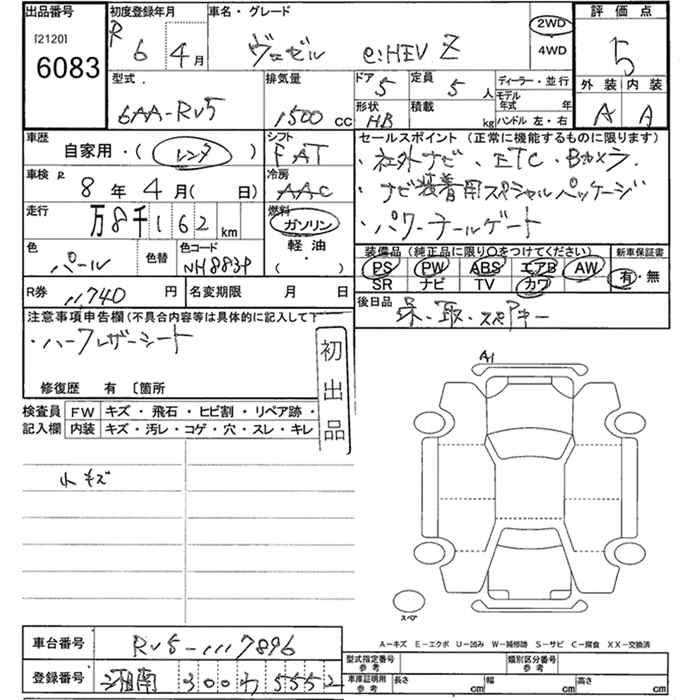 出品番号 初度登録年月 車名・グレード
[2120] R 6 4月 ヴェゼル e:HEV Z 2WD 評価点
6083 4WD 5
型式 排気量 ドア 定員 ディーラー・並行 外装 内装
6AA-RV5 1500 CC 5 5人 モデル年式 年 A A
形状 積載 ハンドル 左・右
HB kg
車歴 シフト セールスポイント (正常に機能するものに限ります)
自家用・(レンタ) FAT ・社外ナビ ・ETC ・Bカメラ
車検 R 冷房
8年 4月( 日) AAC ・ナビ装着用スペシャルパッケージ
走行 燃料
万8千162km ガソリン ・パワーテールゲート
色 色替 色コード 軽油 装備品 (純正品に限り〇をつけてください) 新車保証書
パール NH883P ・( ) PS PW ABS エアB AW 有・無
SR ナビ TV カワ
R券 11740円 名変期限 月 日 後日品
保・取・スペアキー
注意事項申告欄 (不具合内容等は具体的に記入して下
・ハーフレザーシート 初出品
修復歴 有 〔箇所
検査員 FW キズ・飛石・ヒビ割・リペア跡・
記入欄 内装 キズ・汚レ・コゲ・穴・スレ・キレ
A1
小キズ
スペア
A-キズ E-エクボ U-凹み W-補修跡 S-サビ C-腐食 XX-交換済
車台番号 RV5-1117896 型式指定番号 参考 類別区分番号 参考
登録番号 湘南 300 わ 5552 車庫証明用 参考 長さ cm 幅 cm 高さ cm